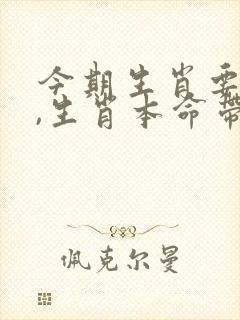 今期生肖要
,生肖本命带
佩克尔曼